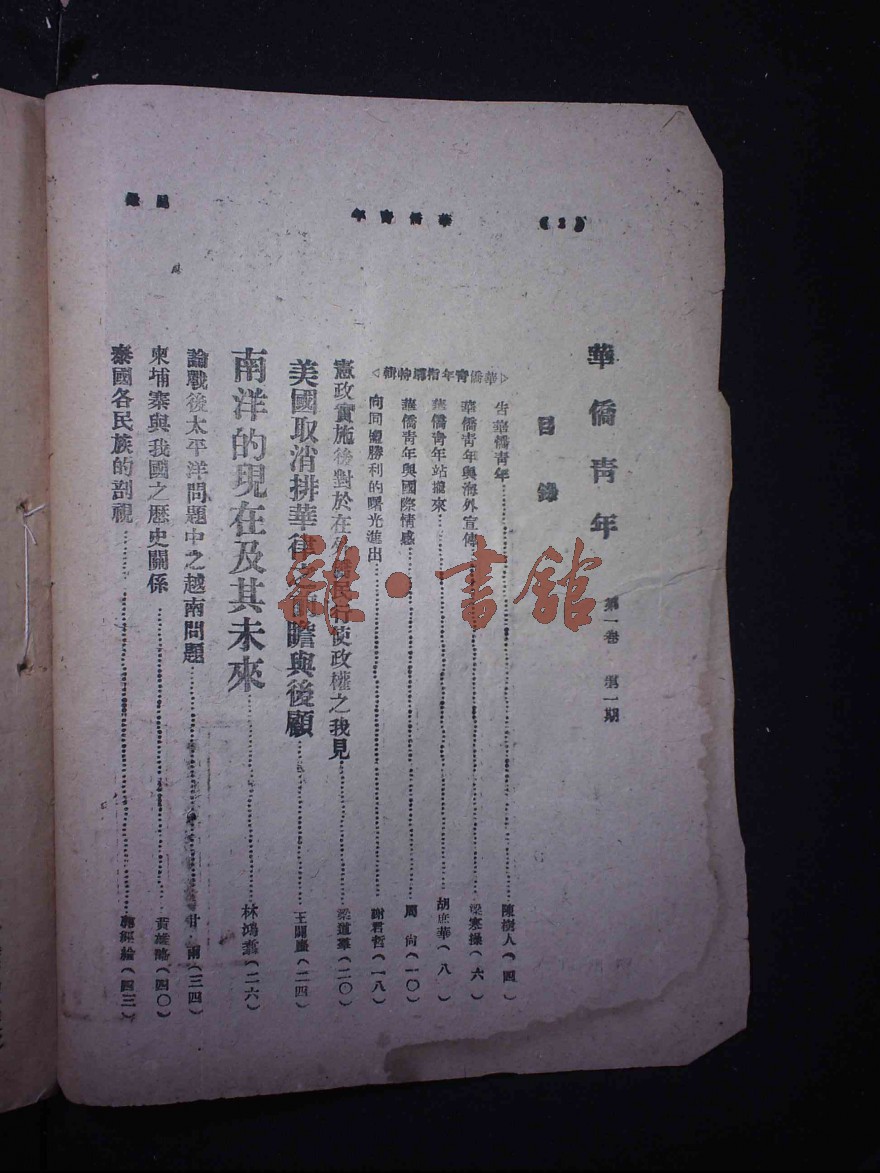 (2)
華僑青年
目錄
華僑青年 第一卷 第一期
目錄
◁華僑青年指導特輯▷
告華僑青年……陳樹人(四)
華僑青年與海外宣傳……梁寒操(六)
華僑青年站攏來……胡庶華(八)
華僑青年與國際情感……周尚(一〇)
向同盟勝利的曙光進出……謝君哲(一八)
憲政實施後對於在外僑民行使政權之我見……梁道羣(二〇)
美國取消排華律之前瞻與後顧……王闢塵(二四)
南洋的現在及其未來……林鴻(二六)
論戰後太平洋問題中之越南問題……甘雨(三四)
柬埔寨與我國之歷史關係……黃雄略(四〇)
泰國各民族的剖視……郭經綸(四三)
雜·書館